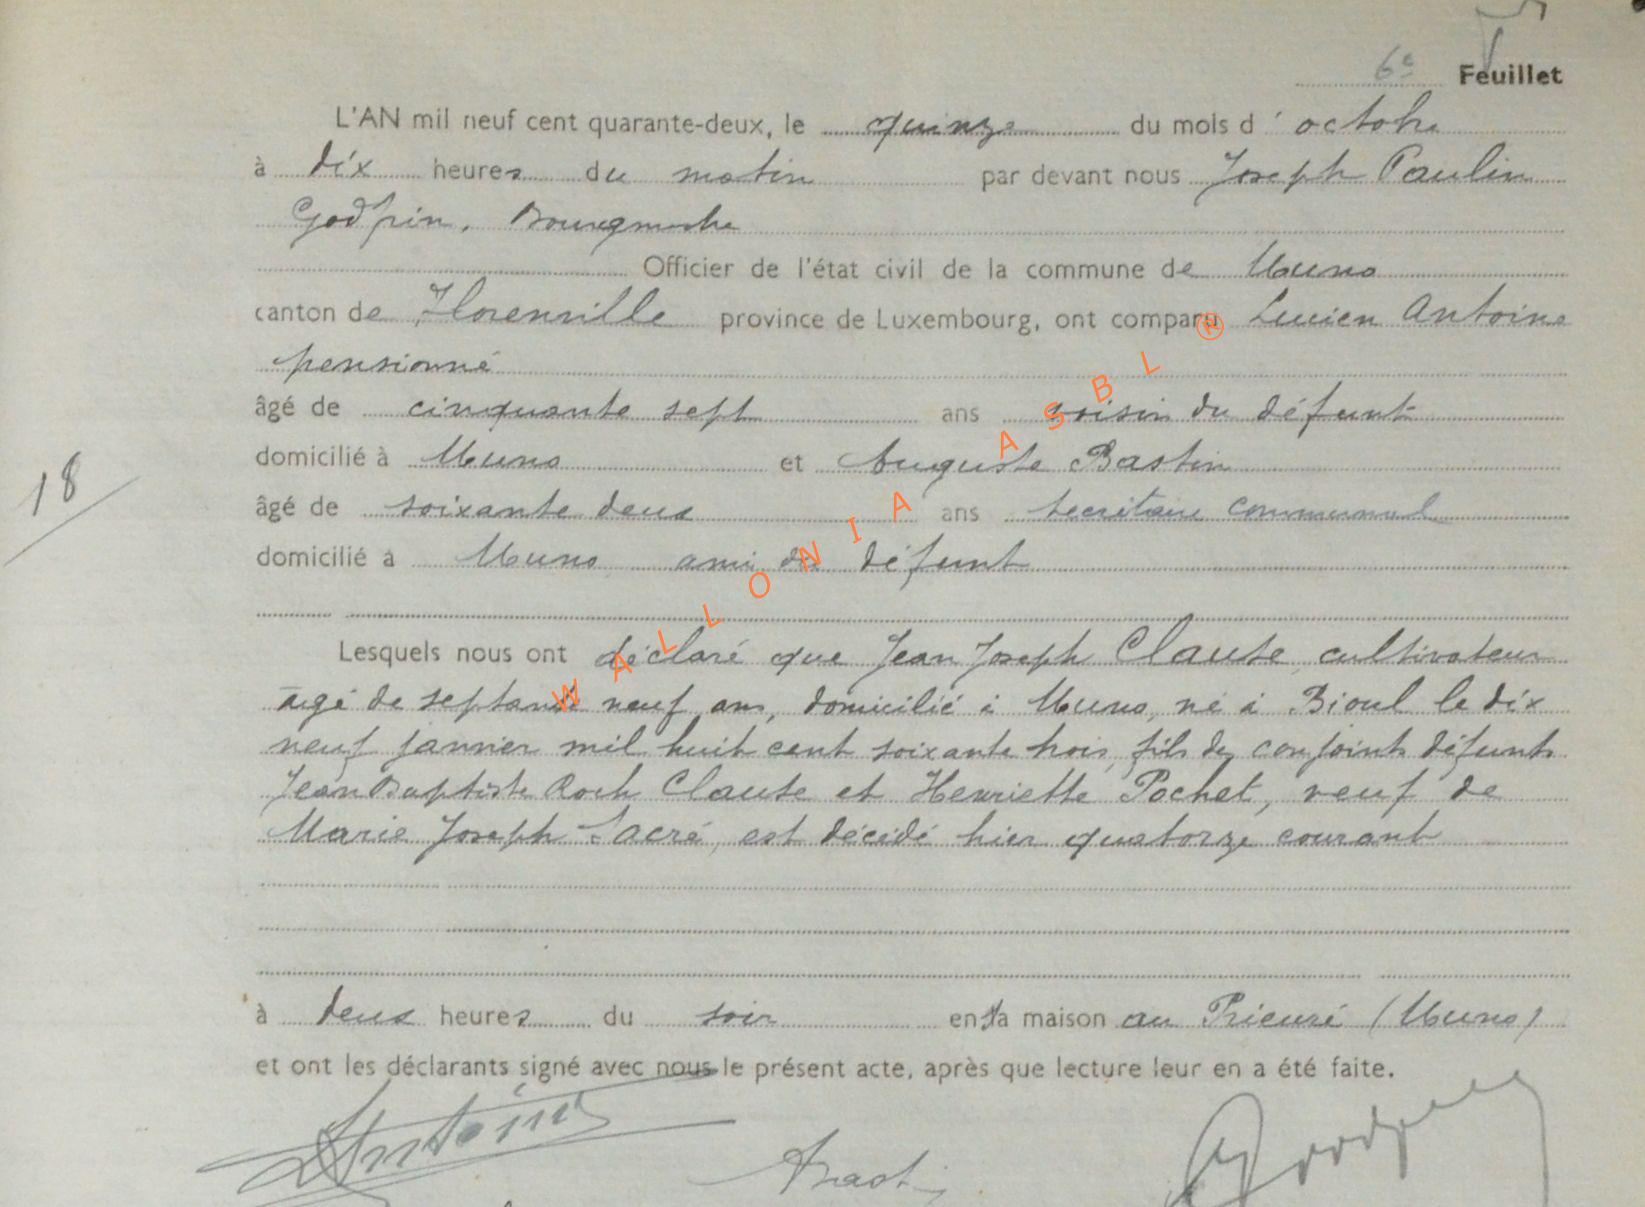 6e Feuillet
L'AN mil neuf cent quarante-deux, le quinze du mois d' octobre
à dix heures du matin par devant nous Joseph Paulin
Godfrin, Bourgmestre
Officier de l'état civil de la commune de Muno
canton de Florenville province de Luxembourg, ont comparu Lucien Antoine
pensionné
âgé de cinquante sept ans voisin du défunt
domicilié à Muno et Auguste Bastin
18
âgé de soixante deux ans secrétaire communal
domicilié à Muno ami du défunt
Lesquels nous ont déclaré que Jean Joseph Claute, cultivateur
âgé de septante neuf ans, domicilié à Muno, né à Bioul le dix
neuf janvier mil huit cent soixante trois, fils des conjoints défunts
Jean Baptiste Roch Claute et Henriette Pochet, veuf de
Marie Joseph Sacré, est décédé hier quatorze courant
à deux heures du soir en sa maison au Prieuré (Muno)
et ont les déclarants signé avec nous le présent acte, après que lecture leur en a été faite.
LAntoine ABastin Godfrin
WALLONIA ASBL ®